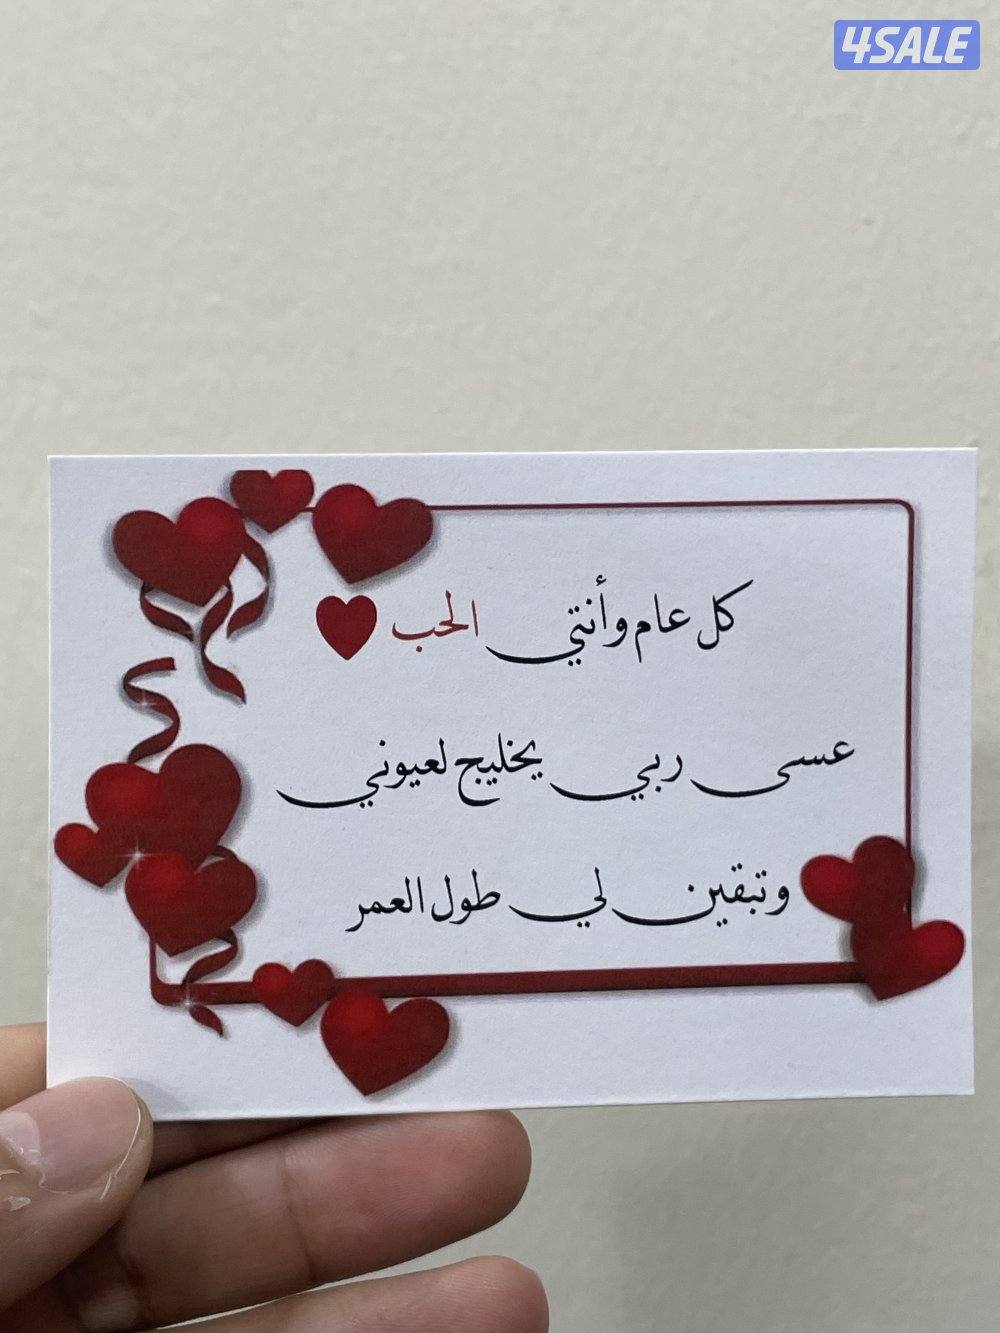 4SALE
كل عام وأنتي الحب
عسى ربي يخليج لعيوني
وتبقين لي طول العمر